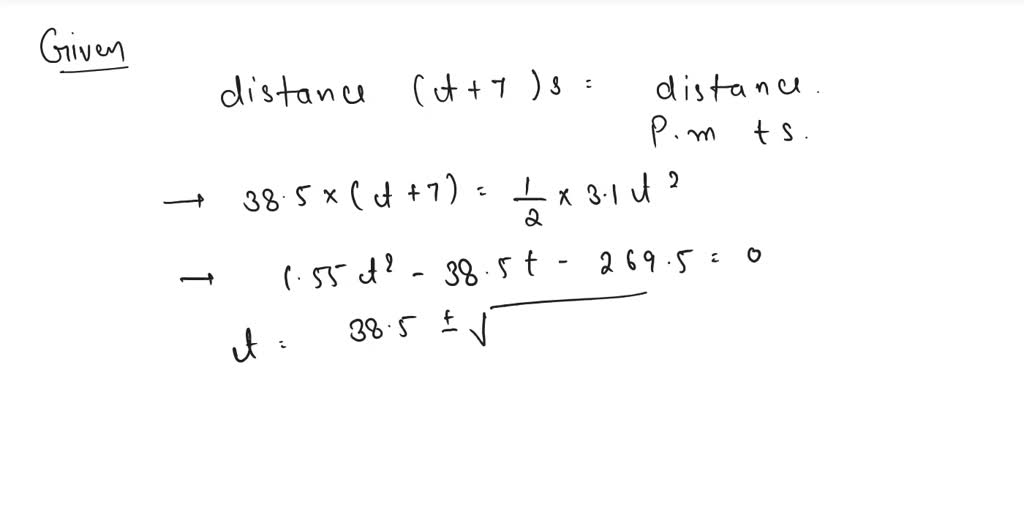 Given
distance (t+7)s = distance.
P.m ts.
→ 38.5 × (t+7) = 1/2 × 3.1 t²
→ 1.55 t² - 38.5t - 269.5 = 0
t = 38.5 ± √